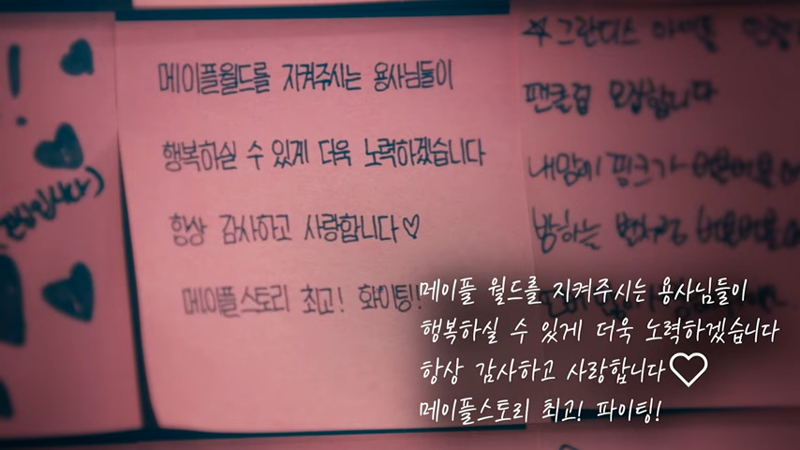 메이플월드를 지켜주시는 용사님들이
행복하실 수 있게 더욱 노력하겠습니다
항상 감사하고 사랑합니다♡
메이플스토리 최고! 화이팅!
☆그란디스 아이돌
팬클럽 모집합니다
내맘이 핑크가
메이플 월드를 지켜주시는 용사님들이
행복하실 수 있게 더욱 노력하겠습니다
항상 감사하고 사랑합니다♡
메이플스토리 최고! 파이팅!